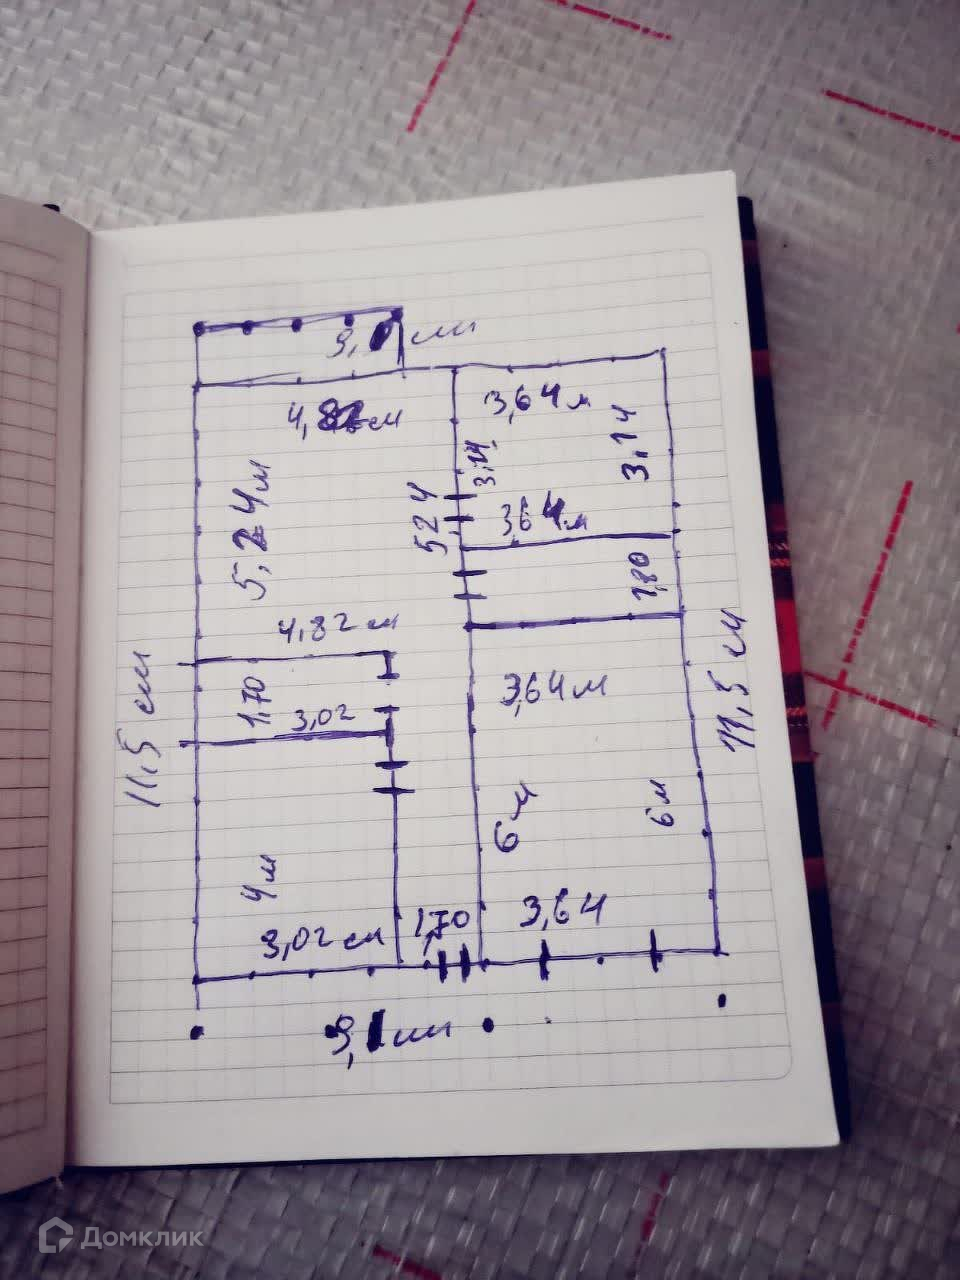 9,1 м
4,82 м
3,64 м
5,24 м
5,24
3,14
3,14
3,64 м
4,82 м
1,80
1,70
3,02
3,64 м
11,5 м
11,5 м
4 м
6 м
6 м
3,02 м
1,70
3,64
9,1 м
Домклик